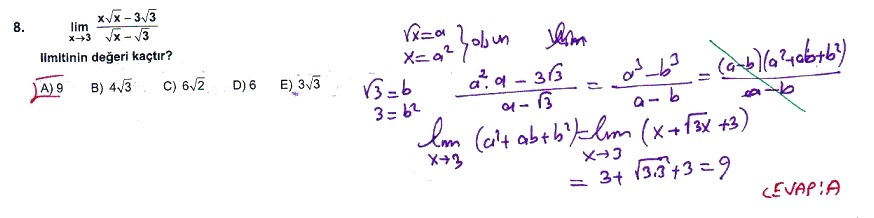 8. lim x→3 (x√x − 3√3) / (√x − √3)
limitinin değeri kaçtır?
A) 9 B) 4√3 C) 6√2 D) 6 E) 3√3
√x = a
x = a² } olsun lim
√3 = b
3 = b²
(a².a − 3√3) / (a − √3) = (a³ − b³) / (a − b) = (a−b)(a²+ab+b²) / (a−b)
lim x→3 (a²+ab+b²) = lim x→3 (x+√3x+3)
= 3+√3.3+3 = 9
CEVAP:A